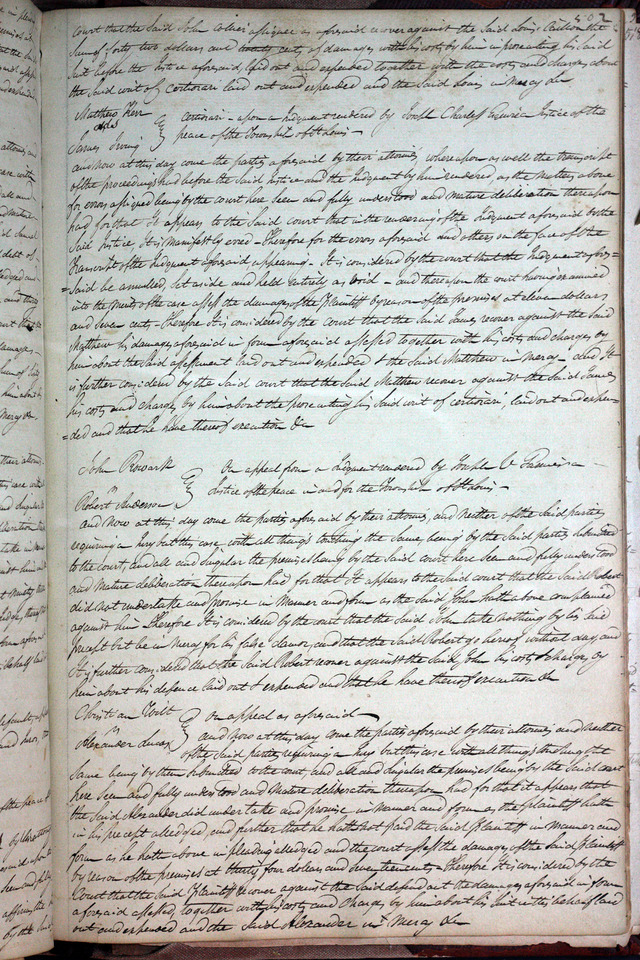 502
Court that the said John Collier assignee as aforesaid recover against the said Louis the
sum of forty two dollars and cents, of damages with his costs by him in prosecuting his said
suit before the Justice aforesaid laid out and expended together with the costs and charges about
the said writ of certiorari laid out and expended and the said Louis in mercy &c
Matthew Kerr
vs
James Irving
certiorari - upon a Judgment rendered by Joseph Charless Esquire a Justice of the
peace of the Township of St Louis -
and now at this day come the parties aforesaid by their attornies whereupon as well the transcript
of the proceedings had before the said Justice and the Judgment by him rendered as the matters above
for errors assigned being by the court here seen and fully understood and mature deliberation thereupon
had for that It appears to the said court that in the rendering of the Judgment aforesaid by the
said Justice, It is manifestly erred - Therefore for the errors aforesaid and others on the face of the
transcript of the Judgment aforesaid appearing - It is considered by the court that the Judgment afore=
=said be annulled, set aside and held entirely as void - and thereupon the court having examined
into the merits of the case assess the damages of the Plaintiff by reason of the premises at eleven dollars
and cents - Therefore It is considered by the Court that the said James recover against the said
Matthew his damages aforesaid in form aforesaid assessed together with his costs and charges by
him about the said assessment laid out and expended & the said Matthew in mercy - and It
is further considered by the said court that the said Matthew recover against the said James
his costs and charges by him about the prosecuting his said writ of certiorari, laid out and expen=
=ded and that he have thereof execution &c
John Rowark
vs
Robert Anderson
On appeal from a Judgment rendered by Joseph V Garnier a
Justice of the peace in and for the Township of St Louis -
and now at this day come the parties aforesaid by their attornies, and neither of the said parties
requiring a Jury but this case with all things touching the same, being by the said parties submitted
to the court, and all and singular the premises being by the said court here seen and fully understood
and mature deliberation thereupon had for that It appears to the said court that the said Robert
did not undertake and promise in manner and form as the said John hath above complained
against him - Therefore It is considered by the court that the said John take nothing by his said
precept but be in mercy for his false clamor, and that the said Robert go hereof without day and
It is further considered that the said Robert recover against the said John his costs & charges by
him about his defence laid out & expended and that he have thereof execution &c
Christian Wilt
vs
Alexander
On appeal as aforesaid
and now at this day come the parties aforesaid by their attornies and neither
of the said parties requiring a Jury but this case with all things touching the
same being by them submitted to the court, and all and singular the premises being by the said court
here seen and fully understood and mature deliberation thereupon had for that it appears that
the said Alexander did undertake and promise in manner and form as the plaintiff hath
in his precept alledged, and further that he hath not paid the said Plaintiff in manner and
form as he hath above in pleading alledged and the court assess the damages of the said Plaintiff
by reason of the premises at thirty four dollars and seventeen cents - Therefore It is considered by the
Court that the said Plaintiff recover against the said defendant the damages aforesaid in form
aforesaid assessed, together with his costs and charges by him about his suit in this behalf laid
out and expended and the said Alexander in mercy &c